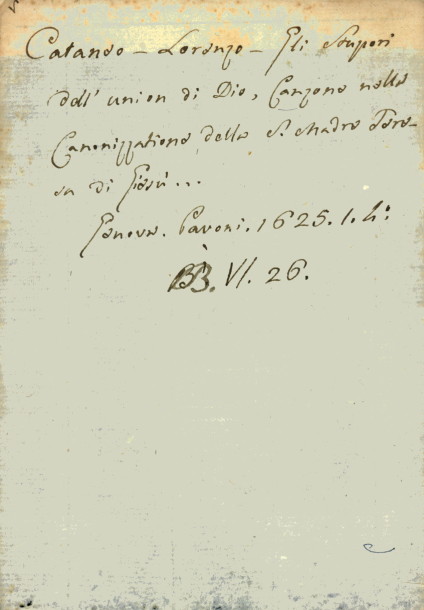 Cataneo - Lorenzo - Gli Stupori
dell' union di Dio, Canzone nella
Canonizzatione della S. Madre Tere-
sa di Giesù...
Genova. Pavoni. 1625. 1. 4:
BB. VI. 26.